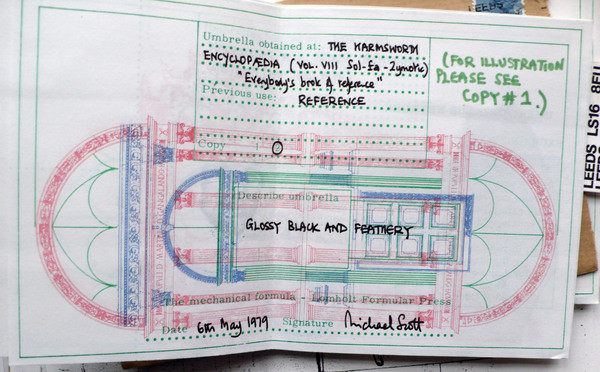 Umbrella obtained at: THE HARMSWORTH
ENCYCLOPÆDIA (VOL. VIII Sol-Ea - Zymotic)
"Everybody's book of reference"
Previous use: REFERENCE
(FOR ILLUSTRATION
PLEASE SEE
COPY # 1.)
Copy
Describe umbrella
GLOSSY BLACK AND FEATHERY
The mechanical formula - Lomholt Formular Press
Date 6th May, 1979 Signature Michael Scott
LEEDS LS16
LEEDS